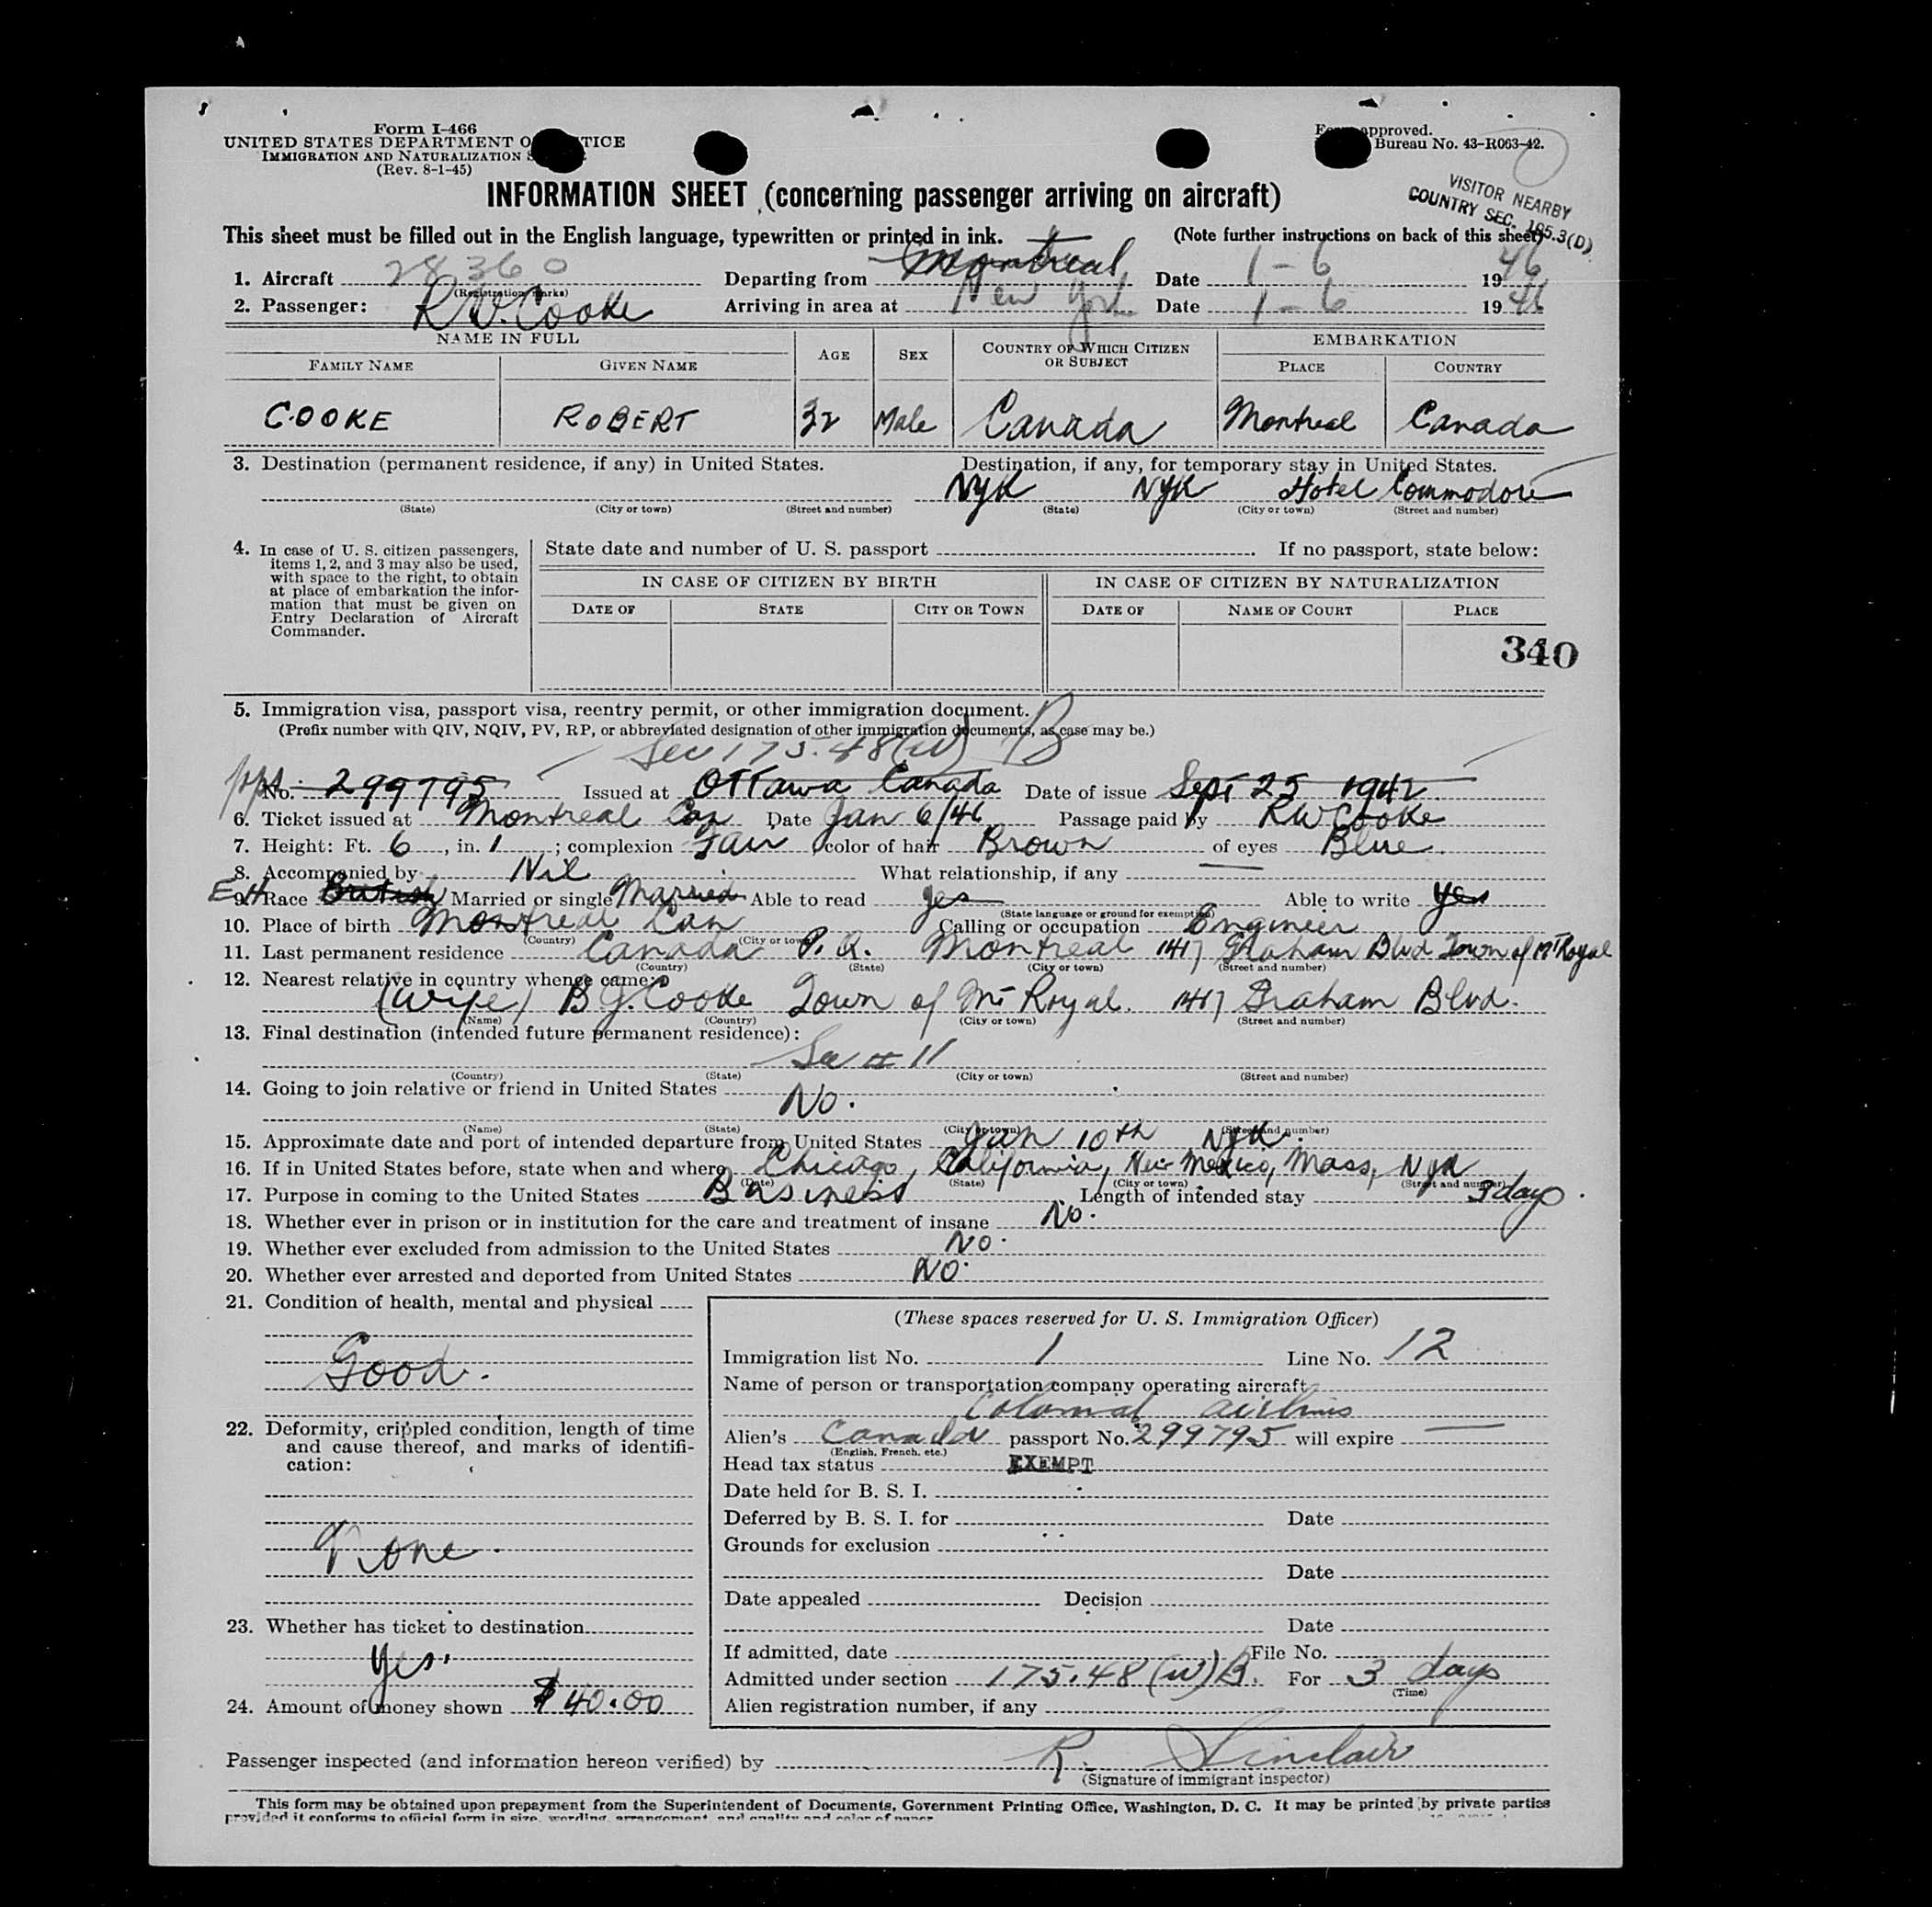 Form I-466
UNITED STATES DEPARTMENT O TICE
IMMIGRATION AND NATURALIZATION S
(Rev. 8-1-45)
approved.
Bureau No. 43-R063-42.
VISITOR NEARBY
COUNTRY SEC. 195.3(D)
INFORMATION SHEET (concerning passenger arriving on aircraft)
This sheet must be filled out in the English language, typewritten or printed in ink. (Note further instructions on back of this sheet)
1. Aircraft 28360 Departing from Montreal Date 1-6 1946
(Registration marks)
2. Passenger: R W. Cooke Arriving in area at New York Date 1-6 1946
NAME IN FULL AGE SEX COUNTRY OF WHICH CITIZEN OR SUBJECT EMBARKATION
FAMILY NAME GIVEN NAME PLACE COUNTRY
COOKE ROBERT 32 Male Canada Montreal Canada
3. Destination (permanent residence, if any) in United States. Destination, if any, for temporary stay in United States.
NYK NYK Hotel Commodore
(State) (City or town) (Street and number) (State) (City or town) (Street and number)
4. In case of U. S. citizen passengers, items 1, 2, and 3 may also be used, with space to the right, to obtain at place of embarkation the information that must be given on Entry Declaration of Aircraft Commander.
State date and number of U. S. passport . If no passport, state below:
IN CASE OF CITIZEN BY BIRTH IN CASE OF CITIZEN BY NATURALIZATION
DATE OF STATE CITY OR TOWN DATE OF NAME OF COURT PLACE
340
5. Immigration visa, passport visa, reentry permit, or other immigration document.
(Prefix number with QIV, NQIV, PV, RP, or abbreviated designation of other immigration documents, as case may be.)
Sec 175.48(w) B
ppt. No. 299795 Issued at Ottawa Canada Date of issue Sept 25 1942
6. Ticket issued at Montreal Can Date Jan 6/46 Passage paid by RW Cooke
7. Height: Ft. 6, in. 1; complexion Fair, color of hair Brown of eyes Blue
8. Accompanied by Nil What relationship, if any —
9. Race British Married or single Married Able to read yes Able to write yes
(State language or ground for exemption)
10. Place of birth Montreal Can Calling or occupation Engineer
(Country) (City or town)
11. Last permanent residence Canada P.Q. Montreal 1417 Graham Blvd Town of Mt Royal
(Country) (State) (City or town) (Street and number)
12. Nearest relative in country whence came:
(Wife) B J. Cooke Town of Mt Royal. 1417 Graham Blvd.
(Name) (Country) (City or town) (Street and number)
13. Final destination (intended future permanent residence):
See # 11
(Country) (State) (City or town) (Street and number)
14. Going to join relative or friend in United States
No.
(Name) (State) (City or town) (Street and number)
15. Approximate date and port of intended departure from United States Jan 10th NYK.
16. If in United States before, state when and where Chicago, California, New Mexico, Mass, NYK
(Date) (State) (City or town) (Street and number)
17. Purpose in coming to the United States Business Length of intended stay 3 days.
18. Whether ever in prison or in institution for the care and treatment of insane No.
19. Whether ever excluded from admission to the United States No.
20. Whether ever arrested and deported from United States No.
21. Condition of health, mental and physical
Good.
22. Deformity, crippled condition, length of time and cause thereof, and marks of identification:
None.
23. Whether has ticket to destination
Yes.
24. Amount of money shown $40.00
(These spaces reserved for U. S. Immigration Officer)
Immigration list No. 1 Line No. 12
Name of person or transportation company operating aircraft
Colonial Airlines
Alien's Canada passport No. 299795 will expire —
(English, French, etc.)
Head tax status EXEMPT
Date held for B. S. I.
Deferred by B. S. I. for Date
Grounds for exclusion
Date
Date appealed Decision
Date
If admitted, date File No.
Admitted under section 175.48(w)B. For 3 days
(Time)
Alien registration number, if any
Passenger inspected (and information hereon verified) by R. Sinclair
(Signature of immigrant inspector)
This form may be obtained upon prepayment from the Superintendent of Documents, Government Printing Office, Washington, D. C. It may be printed by private parties
provided it conforms to official form in size, wording, arrangement, and quality and color of paper.